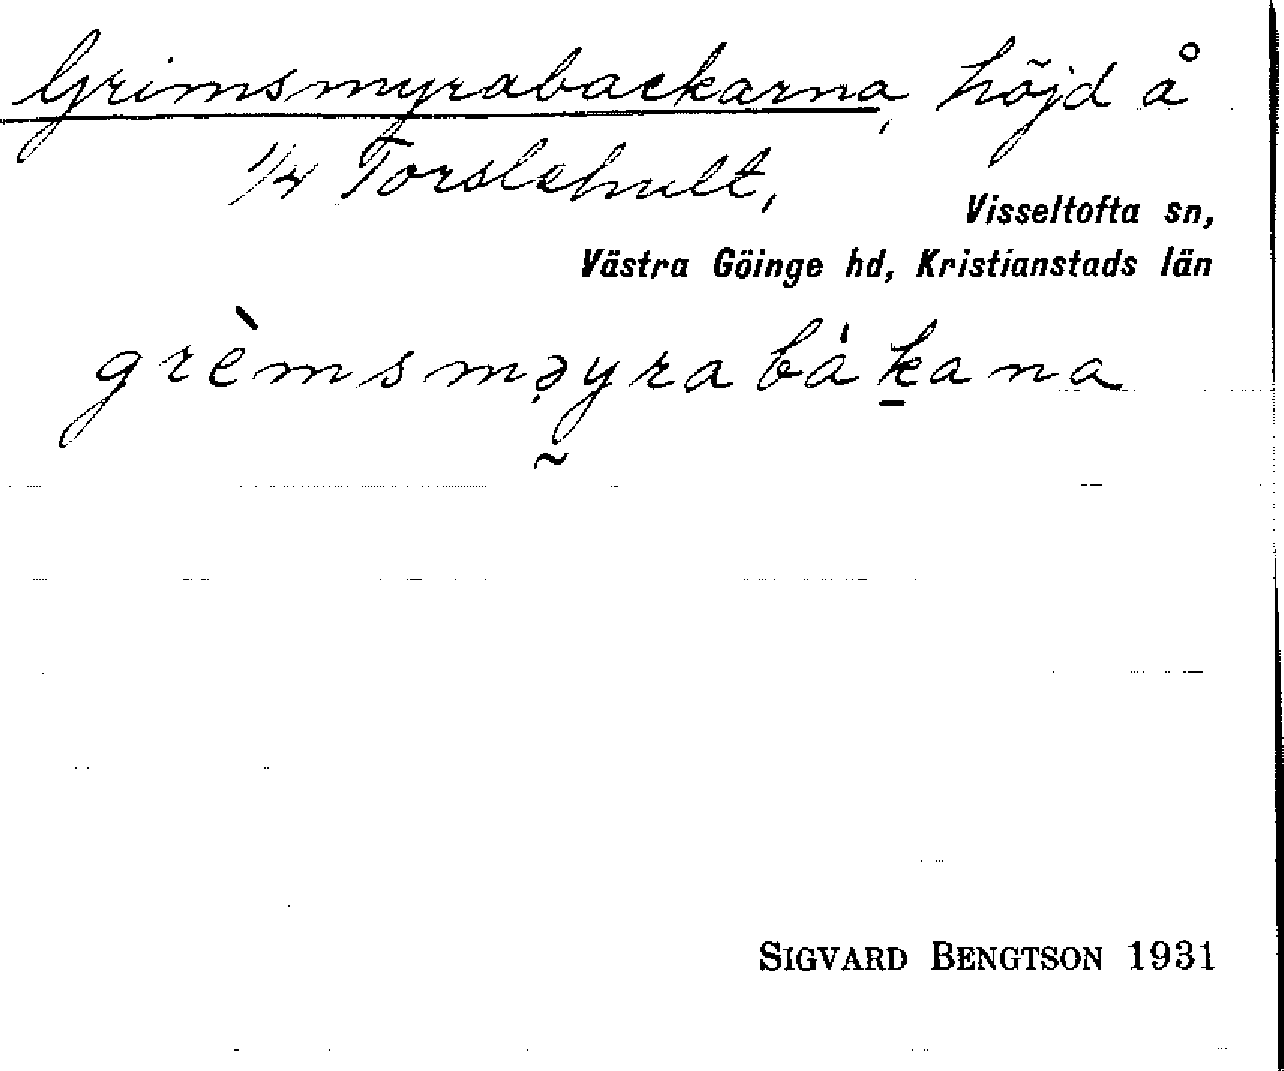 Grimsmyrabackarna, höjd å
1/4 Torslehult,
Visseltofta sn,
Västra Göinge hd, Kristianstads län
grèmsməyrabákana
SIGVARD BENGTSON 1931